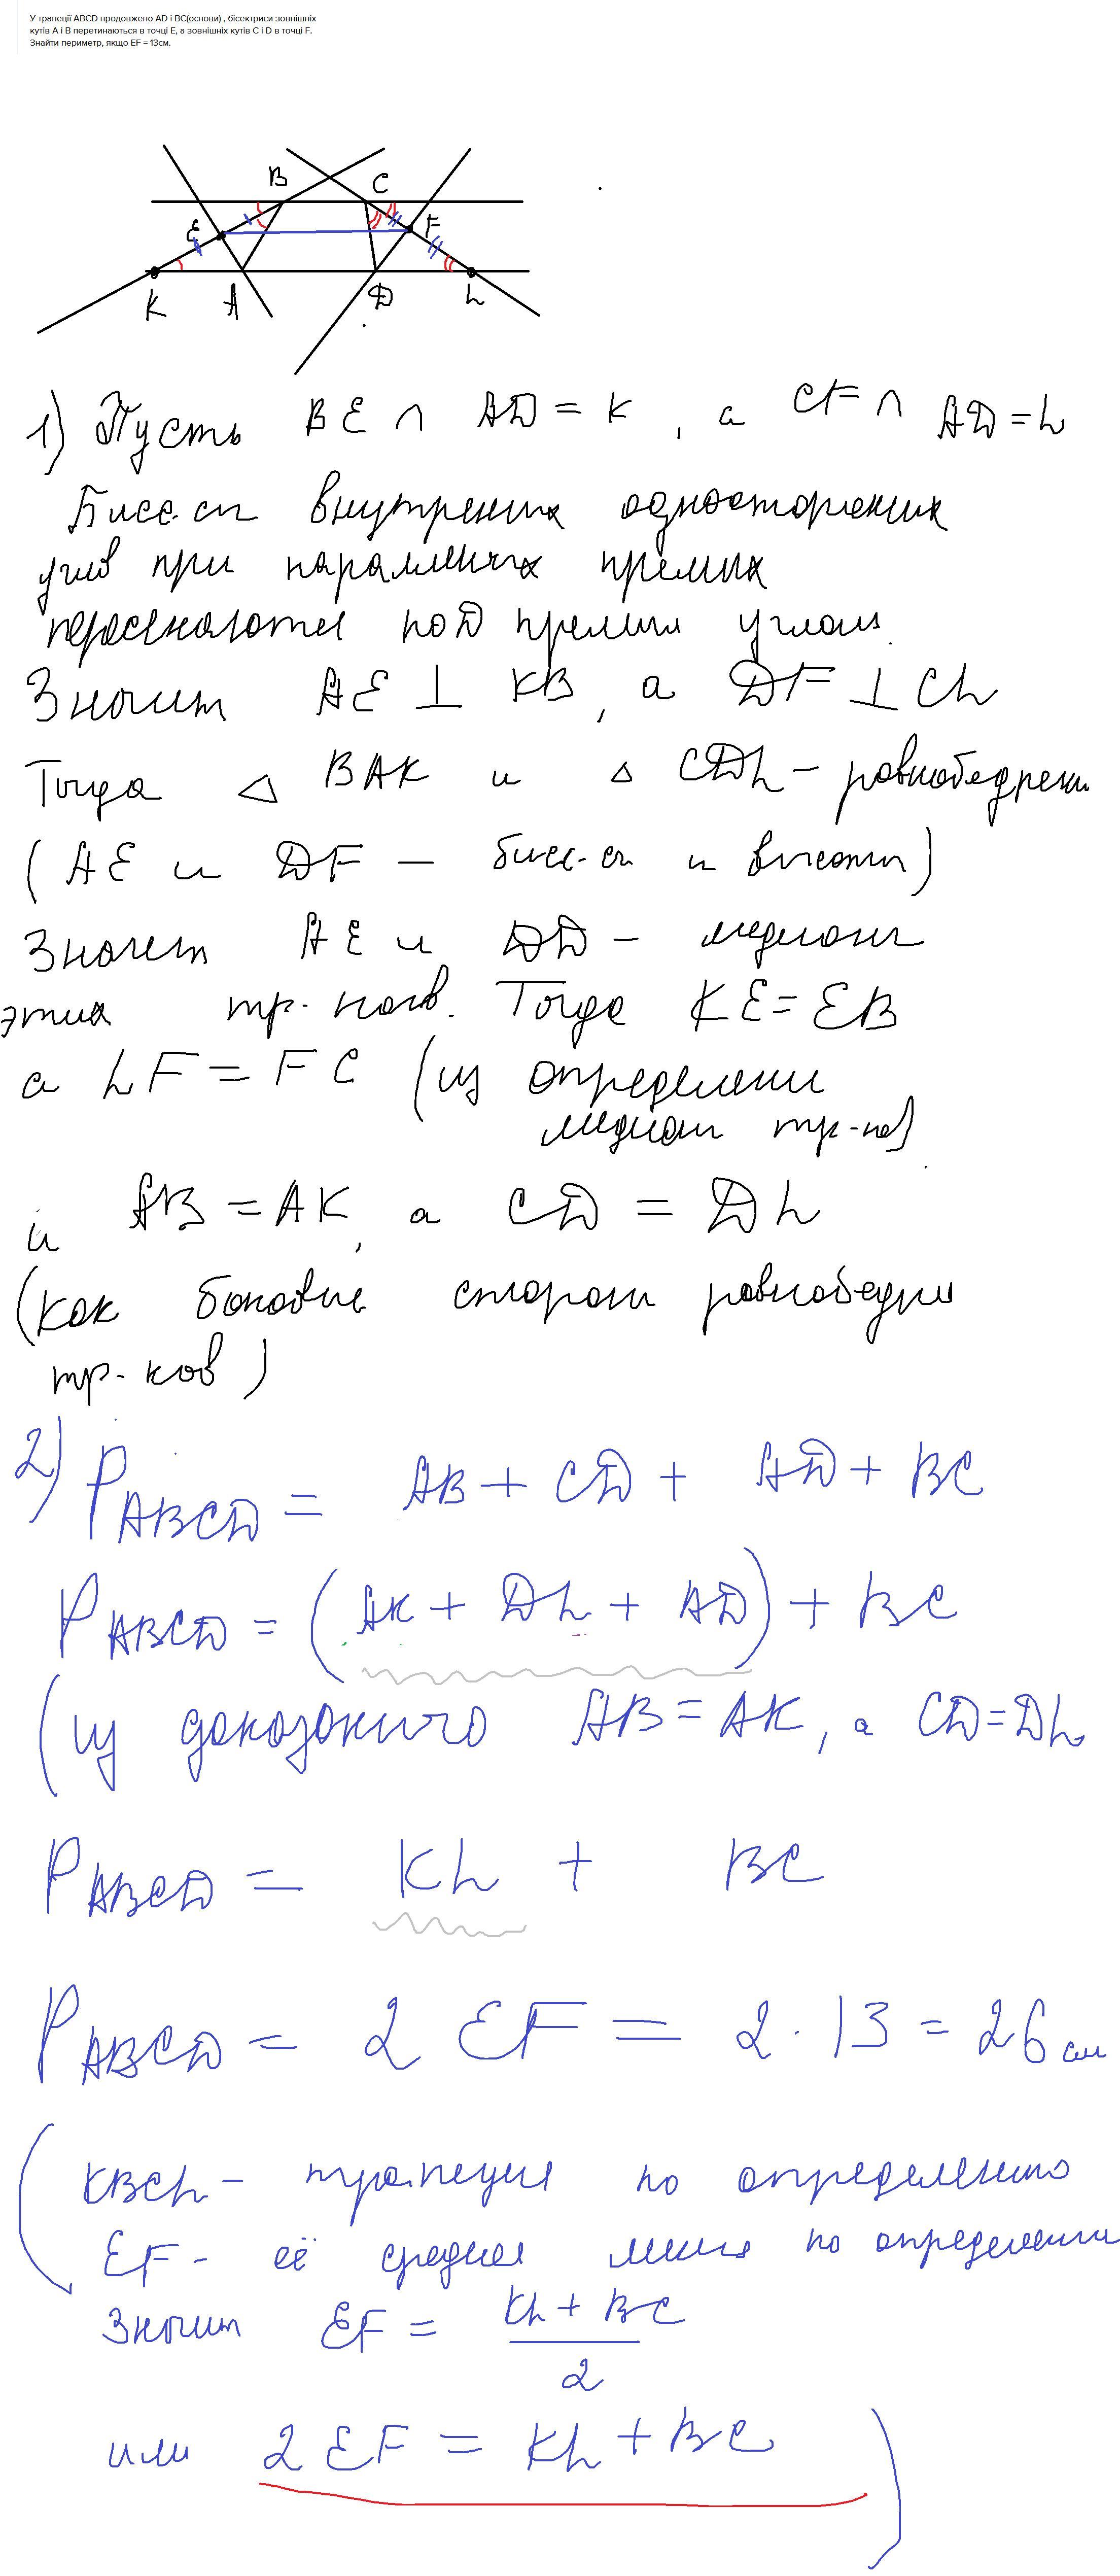 У трапеції ABCD продовжено AD і BC(основи) , бісектриси зовнішніх
кутів A і B перетинаються в точці E, а зовнішніх кутів C і D в точці F.
Знайти периметр, якщо EF = 13см.
B C
E F
K A D L
1) Пусть BE ∩ AD = K , а CF ∩ AD = L
Бисс-сы внутрених односторених
углов при паралельных прямых
пересекаются под прямым углом.
Значит AE ⊥ KB , а DF ⊥ CL
Тогда △ BAK и △ CDL – равнобедрены
(AE и DF – бисс-сы и высоты)
Значит AE и DD – медианы
этих тр-ков. Тогда KE = EB
а LF = FC (из определения
медианы тр-ка)
и AB = AK , а CD = DL
(как боковые стороны равнобедр
тр-ков)
2) P ABCD = AB + CD + AD + BC
P ABCD = (AK + DL + AD) + BC
(из доказоного AB = AK , а CD = DL
P ABCD = KL + BC
P ABCD = 2 EF = 2 · 13 = 26 см
(KBCL – трапеция по определению
EF – её средняя линия по определению
Значит EF = KL + BC
2
или 2 EF = KL + BC )